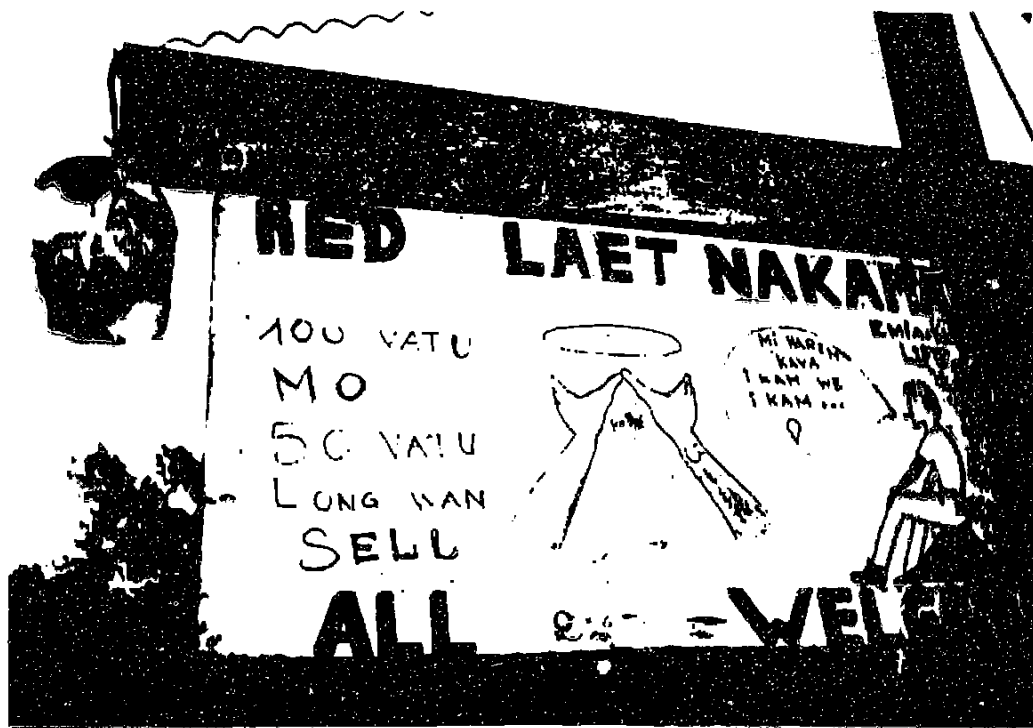 RED LAET NAKAMA
100 VATU
MO
50 VATU
LONG WAN
SELL
MI HAREM
KAVA
I KAM WE
I KAM ...
ALL WELC